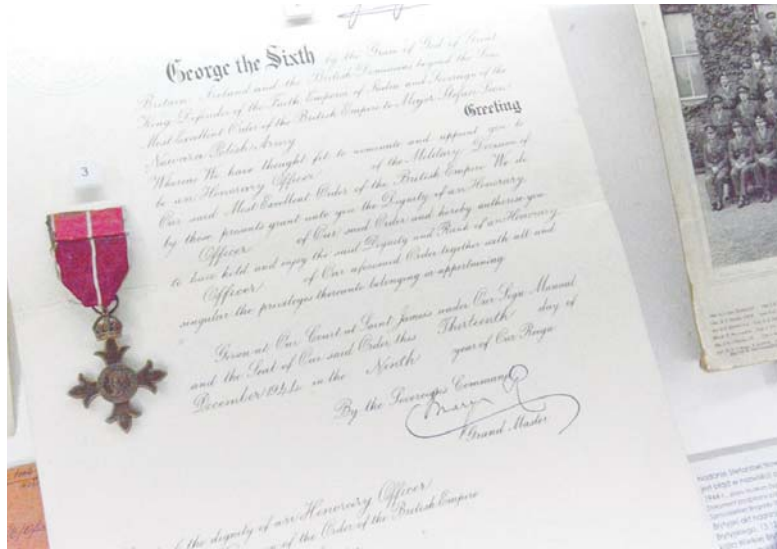 3
George the Sixth by the Grace of God of Great
Britain Ireland and the British Dominions beyond the Seas
King Defender of the Faith Emperor of India and Sovereign of the
Most Excellent Order of the British Empire to Major Stefan
Polish Army
Greeting
Whereas We have thought fit to nominate and appoint you to
be an Honorary Officer of the Military Division of
Our said Most Excellent Order of the British Empire We do
by these presents grant unto you the Dignity of an Honorary
Officer of Our said Order and hereby authorise you
to have hold and enjoy the said Dignity and Rank of an Honorary
Officer of Our aforesaid Order together with all and
singular the privileges thereunto belonging or appertaining
Given at Our Court at Saint James's under Our Sign Manual
and the Seal of Our said Order this Thirteenth day of
December 1944 in the Ninth year of Our Reign
By the Sovereign's Command
Grand Master
the dignity of an Honorary Officer
of the Order of the British Empire